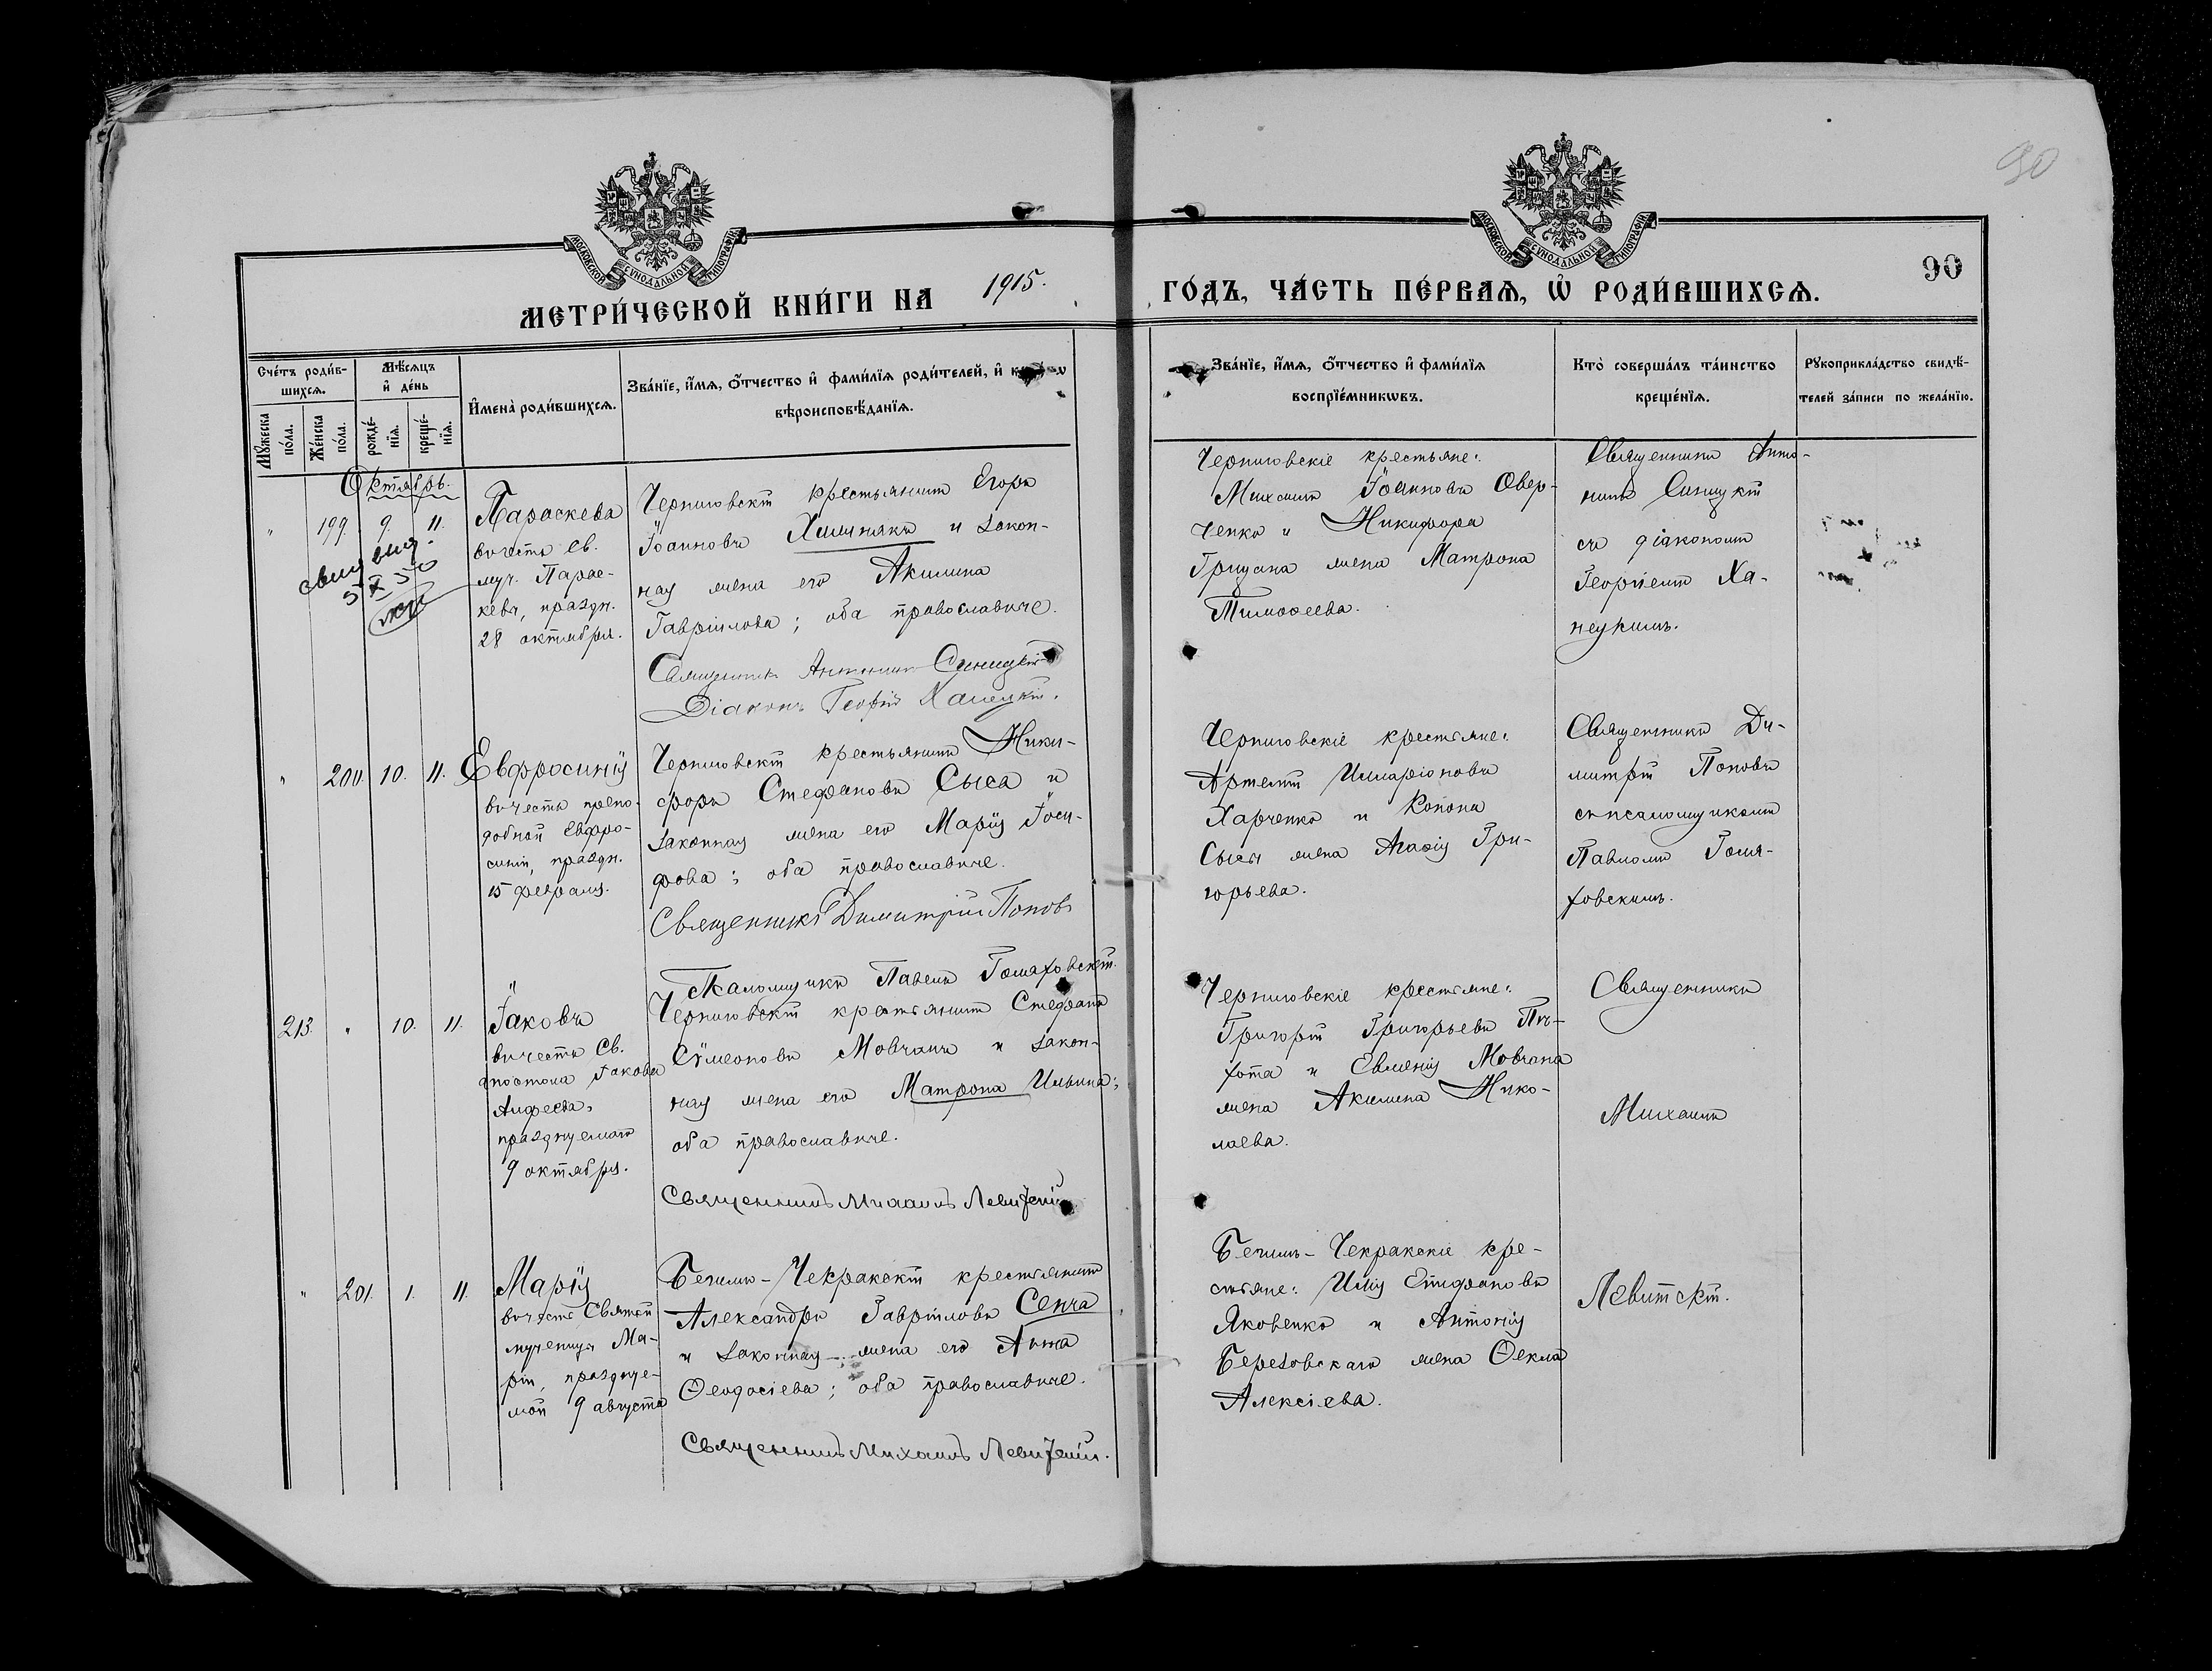 90
МОСКОВСКОЙ СѴНОДАЛЬНОЙ ТИПОГРАФІИ
МОСКОВСКОЙ СѴНОДАЛЬНОЙ ТИПОГРАФІИ
90
МЕТРИ́ЧЕСКОЙ КНИ́ГИ НА 1915. ГО́ДЪ, ЧА́СТЬ ПЕ́РВАѦ, Ѡ РОДИ́ВШИХСѦ.
Сче́тъ роди́в-
шихсѧ.
Мѣ́сѧцъ
и҆ де́нь
Мꙋ́жеска
по́ла.
Же́нска
по́ла.
рожде́-
нїѧ.
креще́-
нїѧ.
И҆мена̀ роди́вшихсѧ.
Зва́нїе, и҆́мѧ, ѻ҆́тчество и҆ фами́лїѧ роди́телей, и҆
вѣроисповѣ́данїѧ.
Зва́нїе, и҆́мѧ, ѻ҆́тчество и҆ фами́лїѧ
воспрїе́мникѡвъ.
Кто̀ соверша́лъ та́инство
креще́нїѧ.
Рꙋкоприкла́дство свидѣ́-
телей за́писи по жела́нїю.
Октябрь.
" 199. 9. 11.
5 X 50
Параскева
въ честь св.
муч. Парас-
кевы, праздн.
28 октября.
Черниговскій крестьянинъ Егоръ
Іоанновъ Хижнякъ и закон-
ная жена его Акилина
Гавріилова; оба православные.
Священникъ Антоній Синицкій
Діаконъ Георгій Ханецкій.
Черниговскіе крестьяне:
Михаилъ Іоанновъ Овер-
ченко и Никифора
Грицана жена Матрона
Тимофеева.
Священникъ Анто-
ній Синицкій
съ діакономъ
Георгіемъ Ха-
нецкимъ.
" 200. 10. 11.
Евфросинія
въ честь препо-
добной Евфро-
синіи, праздн.
15 февраля.
Черниговскій крестьянинъ Ники-
форъ Стефановъ Сыса и
законная жена его Марія Іоси-
фова; оба православные.
Священникъ Димитрій Поповъ
Псаломщикъ Павелъ
Черниговскіе крестьяне:
Артемій Илларіоновъ
Харченко и Конона
Сысы жена Агафія Гри-
горьева.
Священникъ Ди-
митрій Поповъ
съ псаломщикомъ
Павломъ
213. " 10. 11.
Іаковъ
въ честь Св.
апостола Іакова
Алфеева,
празднуемаго
9 октября.
Черниговскій крестьянинъ Стефанъ
Сѵмеоновъ Мовчанъ и закон-
ная жена его Матрона Ильина;
оба православные.
Священникъ Михаилъ Левитскій
Черниговскіе крестьяне:
Григорій Григорьевъ Пѣ-
хота и Евменія Мовчана
жена Акилина Нико-
лаева.
Священникъ
Михаилъ
" 201. 1. 11.
Марія
въ честь Святой
мученицы Ма-
ріи, праздну е-
мой 9 августа
Бегимъ-Чекракскій крестьянинъ
Александръ Гавріиловъ Сенча
и законная жена его Анна
Ѳеодосіева; оба православные.
Священникъ Михаилъ Левитскій.
Бегимъ-Чекракскіе кре-
стьяне: Илія Епифановъ
Яковенко и Антонія
Березовскаго жена Ѳекла
Алексіева.
Левитскій.